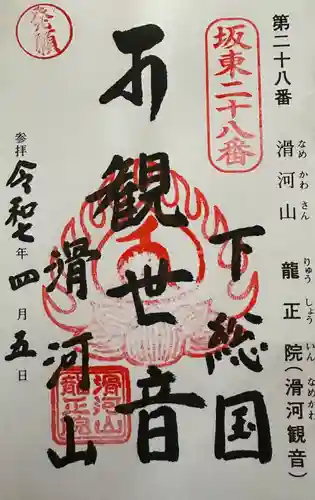 第二十八番 滑河山 龍正院(滑河観音)
なめ かわ さん りゅう しょう いん なめかわ
坂東二十八番
下総国
観世音
滑河山
参拝 令和七年 四月 五日
発願
滑河山
龍正院